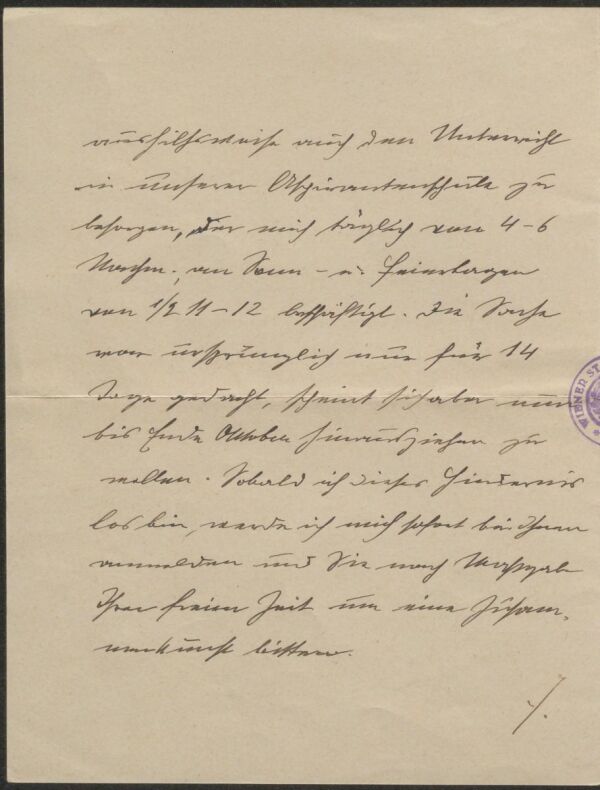 aushilfsweise auch den Unterricht
in unserer Aspirantenschule zu
besorgen, der mich täglich von 4-6
Nachm., an Sonn- u. Feiertagen
von 1/2 11-12 beschäftigt. Die Sache
war ursprünglich nur für 14
Tage gedacht, scheint sich aber nun
bis Ende Oktober hinausziehen zu
wollen. Sobald ich dieses Hindernis
los bin, werde ich mich sofort bei Ihnen
anmelden und Sie nach Maßgabe
Ihrer freien Zeit um eine Zusam-
menkunft bitten.
./.
WIENER ST